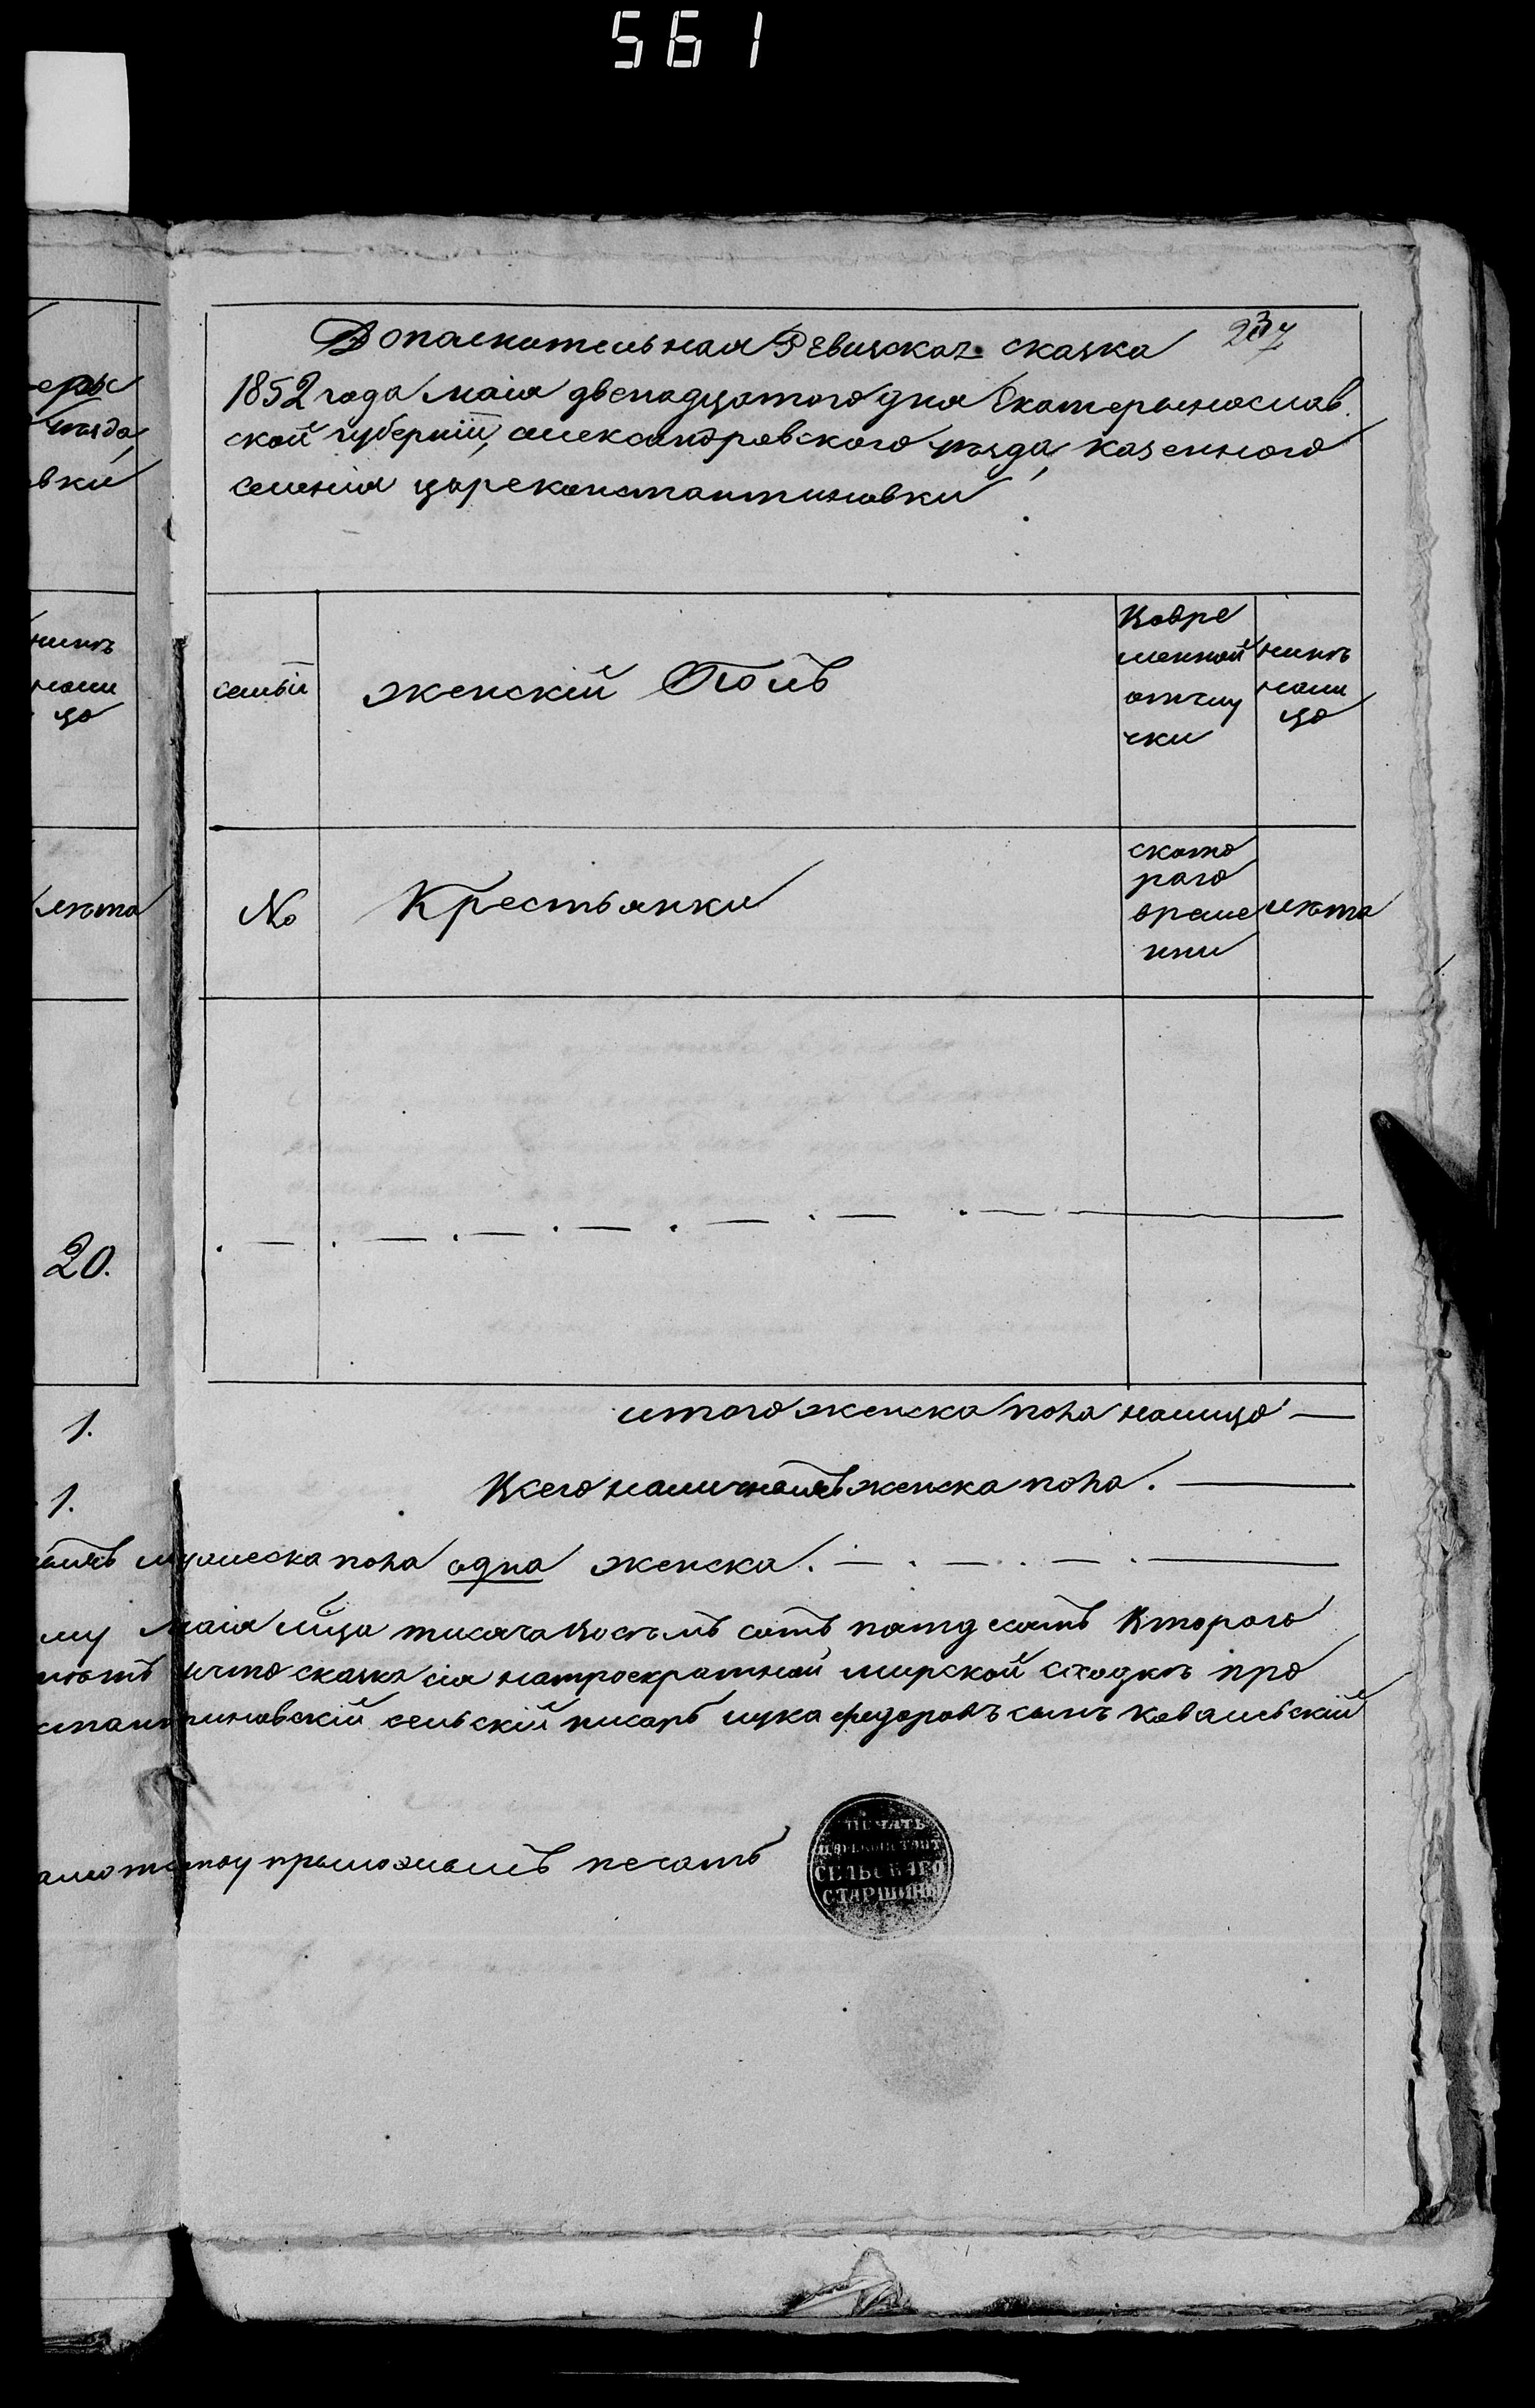 561
237
Дополнительная Ревизская сказка
1852 года маія двенадцатого дня Екатерынослав
ской губерніи, александровского уѣзда, казенного
селенія цареконстантиновки
еры
уѣзда,
вки
семьи
женскій Полъ
Вовре
менной
отлу
чки
нынѣ
нали
цо
нынѣ
нали
цо
№
Крестьянки
ското
раго
време
нни
лѣта
лѣта
20.
1.
1.
итого женска пола налицо —
Всего наличныхъ женска пола. —
мужеска пола одна женска. —
маія мца тисяча восѣмъ сотъ пятдесятъ Второго
что сказка сія натроекратной мирской сходкѣ про
стантиновскій сельскій писарь лука федоровъ сынъ ковальскій
приложилъ печать
ПЕЧАТЬ
ЦАРЕКОНСТАНТ
СЕЛЬСКАГО
СТАРШИНЫ